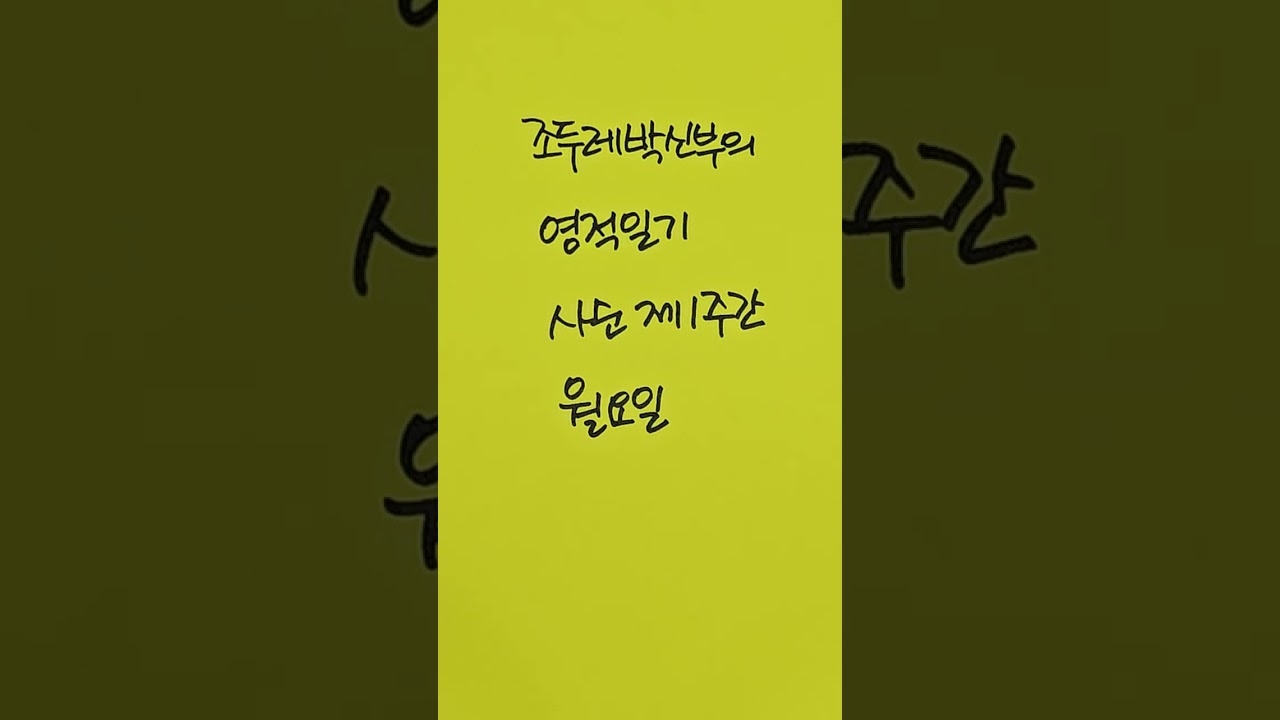 조두레박신부의
영적일기
사순 제1주간
월요일